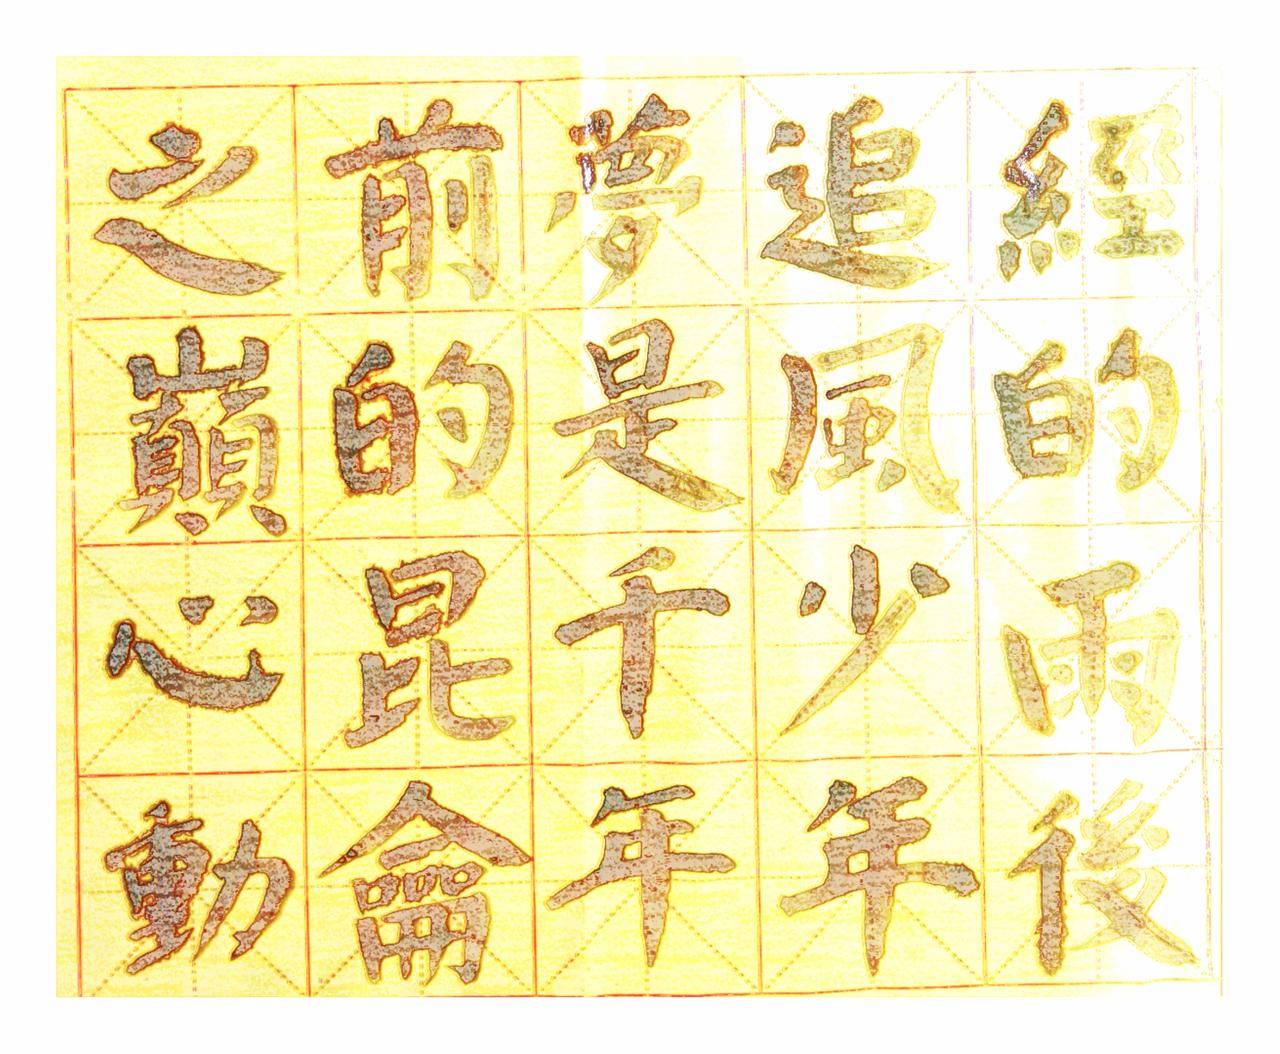 經的雨後
追風少年
夢是千年
前的昆侖
之巔心動